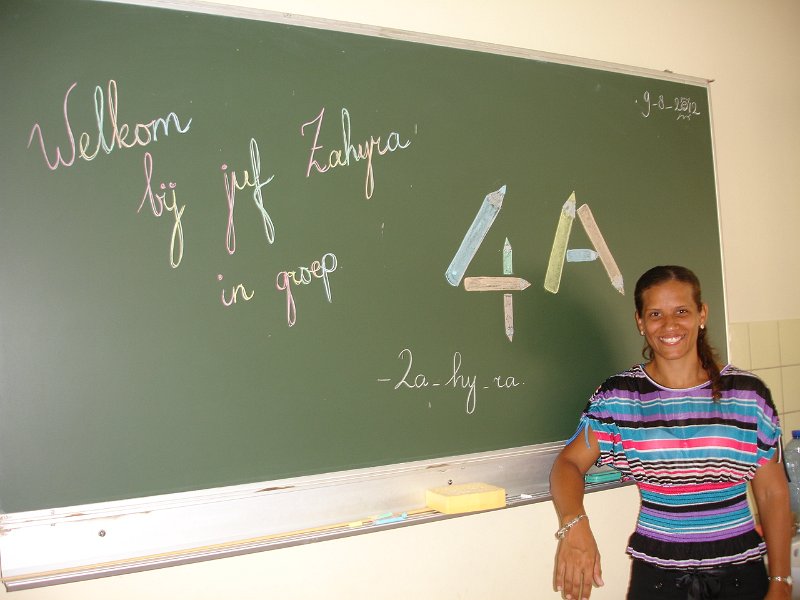 Welkom
bij juf Zahyra
in groep
4A
-Za-hy-ra.
9-8-2012